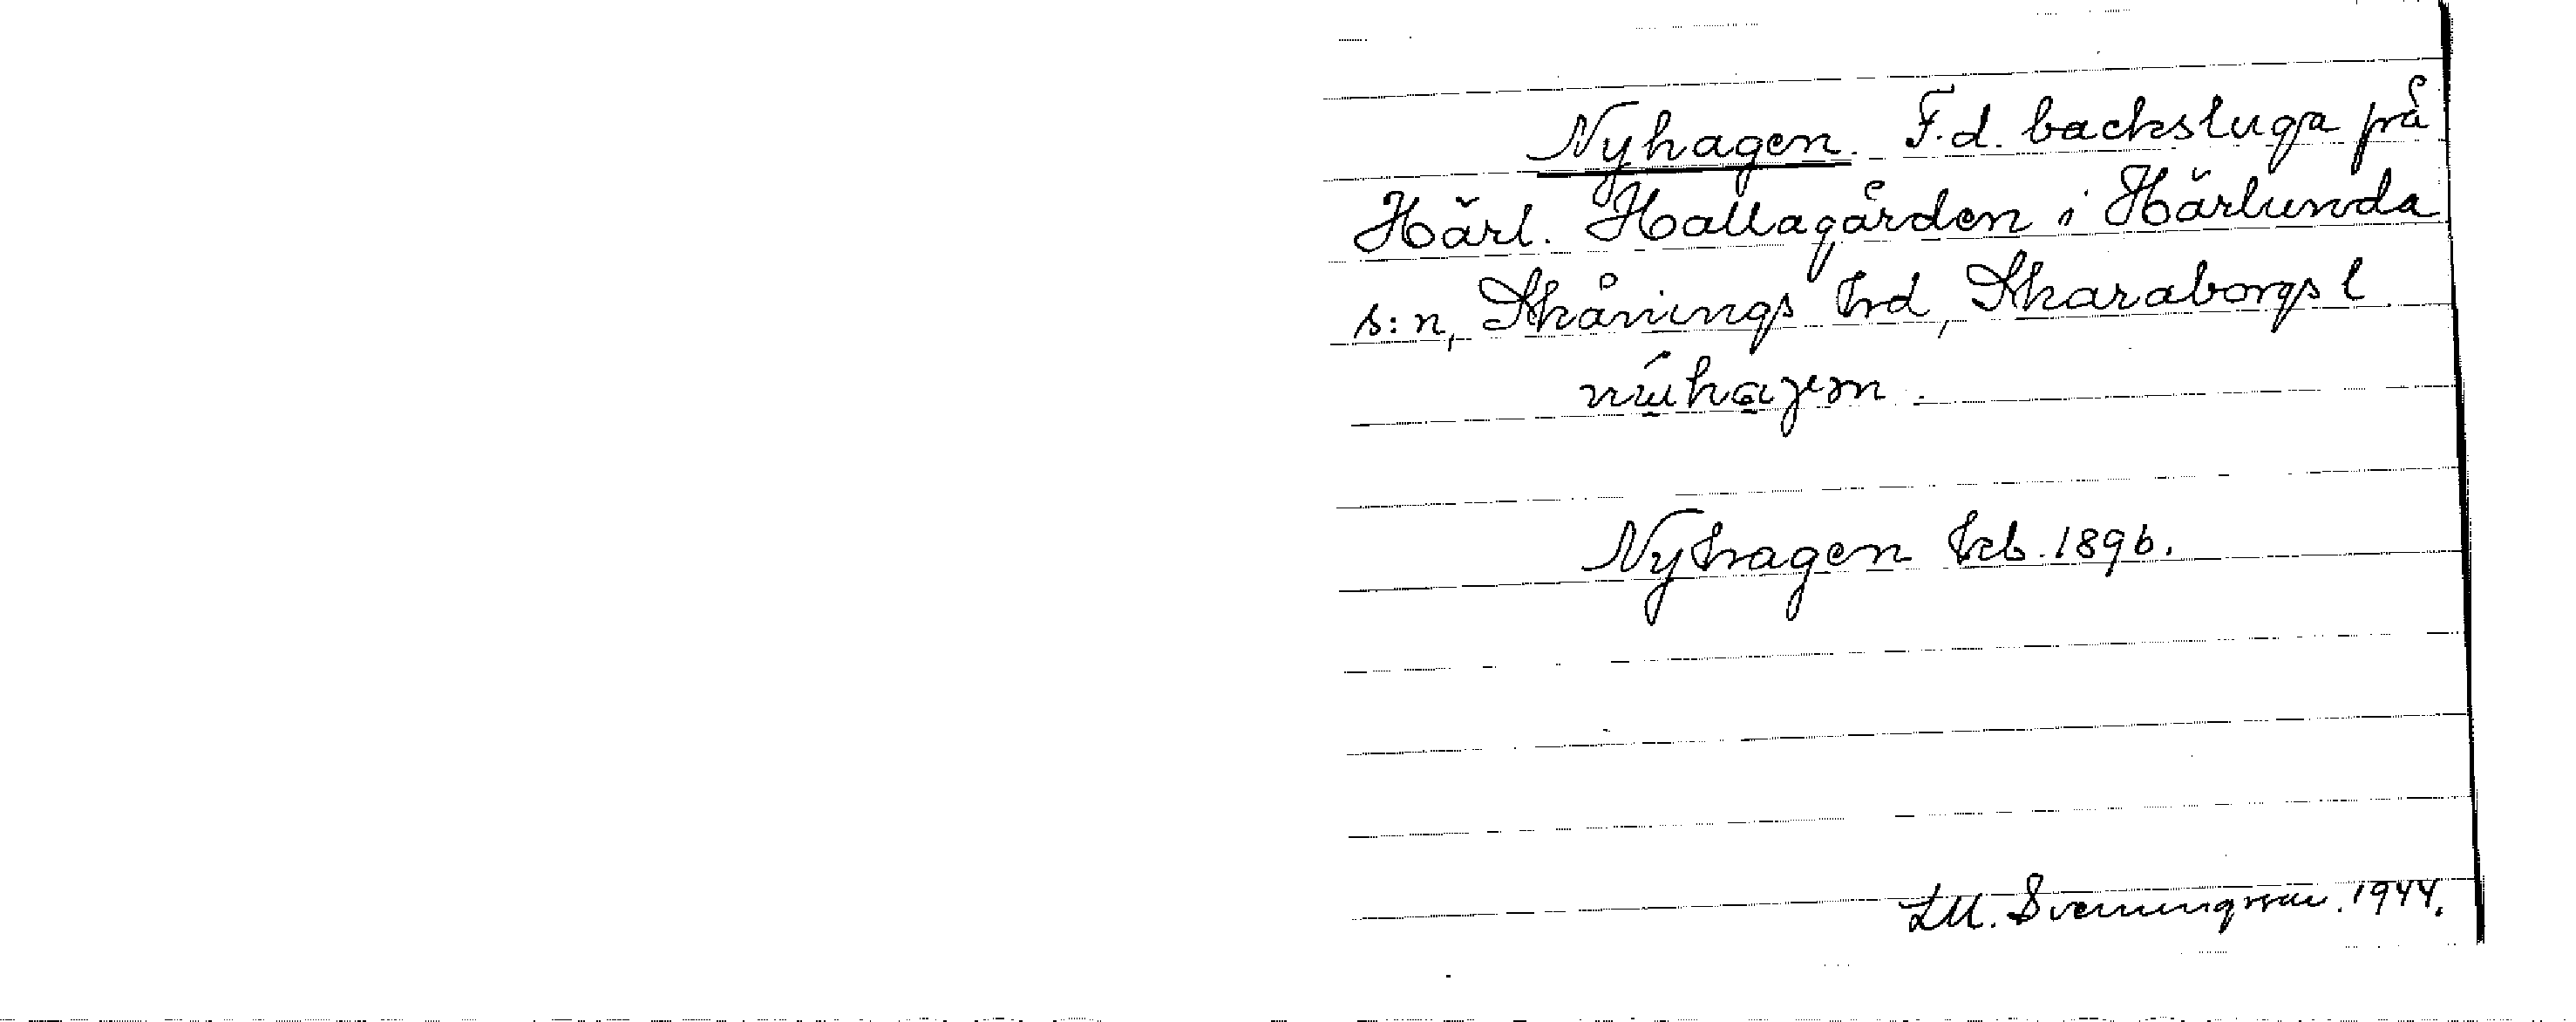 Nyhagen. F.d. backstuga på
Härl. Hallagården i Härlunda
s:n, Skånings hrd, Skaraborgs l
Nyhagen kb. 1896.
Svenningsson. 1944.